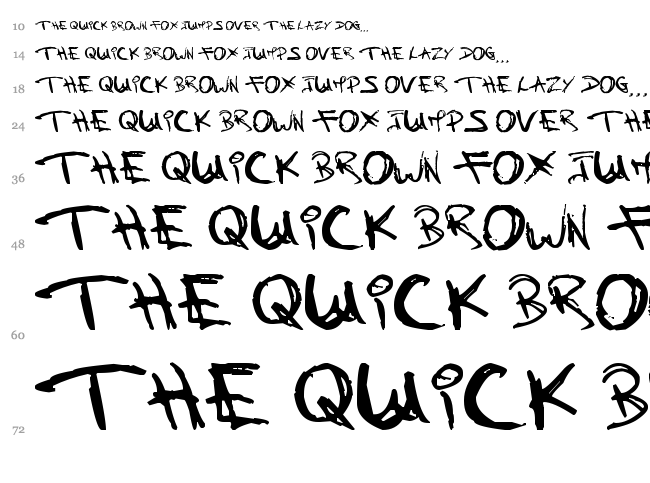 10 THE QUICK BROWN FOX JUMPS OVER THE LAZY DOG...
14 THE QUICK BROWN FOX JUMPS OVER THE LAZY DOG...
18 THE QUICK BROWN FOX JUMPS OVER THE LAZY DOG...
24 THE QUICK BROWN FOX JUMPS OVER THE
36 THE QUICK BROWN FOX JUM
48 THE QUICK BROWN F
60 THE QUICK BRO
72 THE QUICK B